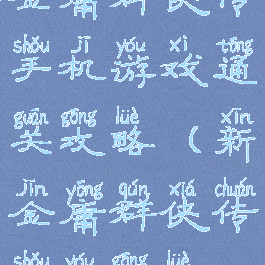 金庸群侠传
shǒu jī yóu xì tōng
手机游戏通
guān gōng lüè xīn
关攻略（新
jīn yōng qún xiá chuán
金庸群侠传
shǒu yóu gōng lüè